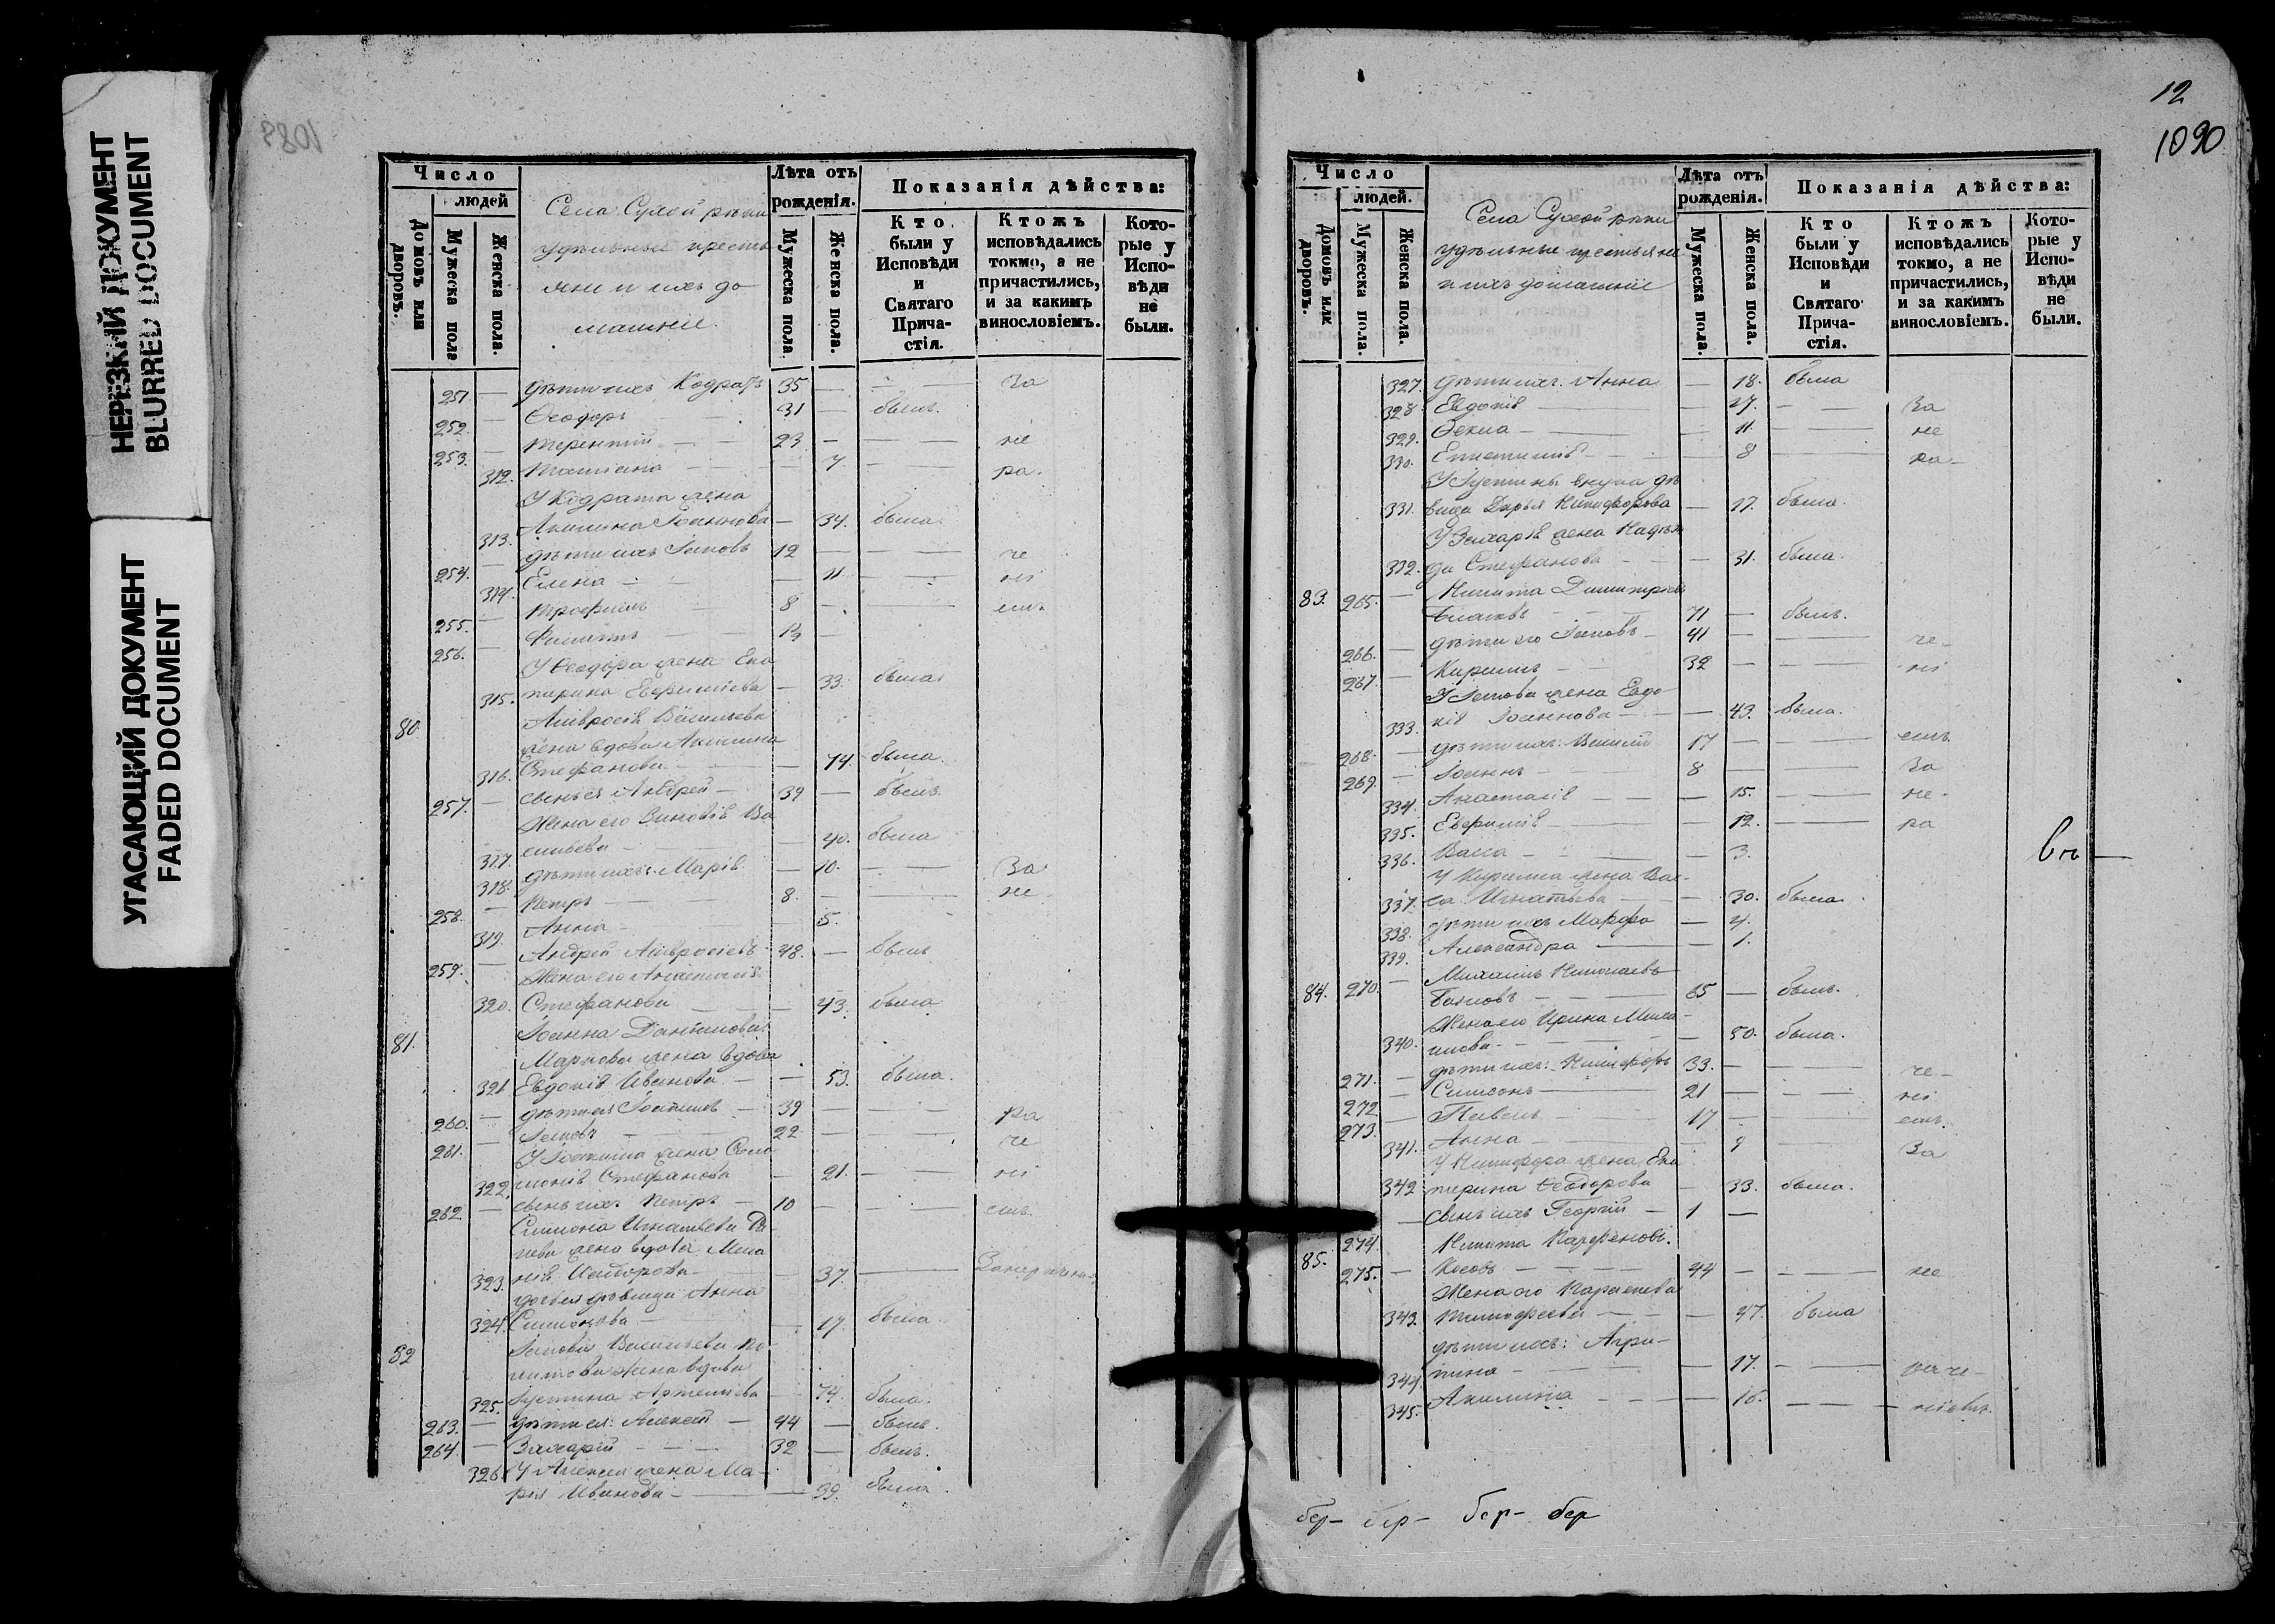 НЕРЕЗКИЙ ДОКУМЕНТ
BLURRED DOCUMENT
УГАСАЮЩИЙ ДОКУМЕНТ
FADED DOCUMENT
Число
людей
Домовъ или дворовъ.
Мужеска пола
Женска пола.
Села Сухой рѣки
удѣльные кресть
яне и ихъ до
машніе.
Лѣта отъ рожденія.
Мужеска пола.
Женска пола.
Показанія дѣйства:
Кто были у Исповѣди и Святаго Прича-стія.
Ктожъ исповѣдались токмо, а не причастились, и за какимъ винословіемъ.
Кото-рые у Испо-вѣди не были.
251 — дѣти ихъ Кодратъ 35 — — — За
252. — Ѳеодоръ 31 — былъ.
253. — Терентій — — 23 — — — не
312. Татіана — — — 7 — ра.
У Кодрата жена
313. Акилина Іоаннова — 34. была.
254. — дѣти ихъ Іаковъ 12 — — — че
314. Елена — — 11 — — ні
255. — Трофимъ — 8 — — — емъ
256. — Филиппъ — — 1½ —
У Ѳеодора жена Ека
315. терина Евфиміева — 33. была
80 Амвросія Васильева
жена вдова Акилина
316. Стефанова — — — 74. была.
257. — сынъ ея Андрей — 39 — былъ.
Жена его Зиновія Ва
317. сильева — — 40. была
318. дѣти ихъ: Марія — 10. — — За
258. — Петръ — — 8. — — — не
319. Анна — — 5.
259. — Андрей Амвросіевъ 48. — былъ
Жена его Анастасія
320. Стефанова — — 43. была
81. Іоанна
Маркова жена вдова
321 Евдокія Иванова — — 53. была.
260. — дѣти ея Іоакимъ — 39 — — — ра
261. — Іаковъ — — 22 — — — че
У Іоакима жена Соло
322. монія Стефанова — 21. — — ні
262 — сынъ ихъ Петръ — 10 — — — емъ.
Симона Игнатьева
жена вдова Мела
323. нія — 37. —
дочь ея дѣвица Анна
324. Симонова — — 17. была.
82 Іакова Васильева
жена вдова
325. Іустина Артеміева — 74. была.
263. — дѣти ея: Алексей — 44 — былъ
264. — Захарій — — 32 — былъ.
326. У Алексея жена Ма-
рія Иванова — — 39. была.
12
1090
Число
людей.
Домовъ или дворовъ.
Мужеска пола.
Женска пола.
Села Сухой рѣки
удѣльные крестьяне
и ихъ домашніе
Лѣта отъ рожденія.
Мужеска пола.
Женска пола.
Показанія дѣйства:
Кто были у Исповѣди и Святаго Прича-стія.
Ктожъ исповѣдались токмо, а не причастились, и за какимъ винословіемъ.
Кото-рые у Испо-вѣди не были.
327. дѣти ихъ. Анна — 18. была
328 Евдокія — — 17. — — За
329. Ѳекла — — 11. — — не
330. Епистимія — — 8 — ра-
У Іустины внука дѣ
331. вица Дарья Никифорова — 17. была.
У Захарія жена Надеж
332. да Стефанова — — 31. была.
83. 265. — Никита Димитріевъ
71 — былъ.
266. — дѣти его Іаковъ — 41 — — че-
267. — Кириллъ — 32 — — ні
У Іакова жена Евдо-
333. кія Іоаннова — — 43. была.
268. — дѣти ихъ: Василій 17 — — емъ
269. — Іоаннъ — 8 — — За
334. Анастасія — — 15. — — не-
335. Евфимія — — 12. — — ра
336. Васса — — 3.
У Кирилла жена Вас-
337. са Игнатьева — — 30. была.
338. дѣти ихъ Марфа — 4.
339. Александра — — 1.
84. 270. — Михаилъ Николаевъ
65 — былъ.
Жена его Ирина Миха-
340. илова — — — 50. была.
271. — дѣти ихъ: Никифоръ 33. — — че-
272 — Симеонъ — 21 — — ні
273. — Павелъ — 17 — — емъ.
341. Анна — — 9 — За
У Никифора жена Ека
342 терина Ѳеодорова — 33. была.
274. — сынъ ихъ Георгій — 1 —
85. Никита Парфеновъ.
275. — Косовъ — — 44 — — — не
Жена его Параскева
343. Тимофеева — — 47. была
дѣти ихъ: Агри-
344. пина — — — 17. — — раче-
345. Акилина — — — 16. — — ніемъ.
бер- бер- бер- бер